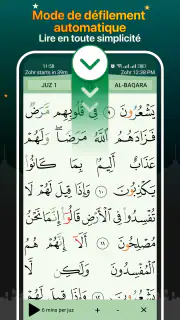 Mode de défilement
automatique
Lire en toute simplicité
11:58
Zohr starts in 39m
Zohr 12:38 PM
JUZ 1
AL-BAQARA
يَشْعُرُونَ ٩ فِي قُلُوبِهِم مَّرَضٌ
فَزَادَهُمُ اللَّهُ مَرَضًا ۖ وَلَهُمْ
عَذَابٌ أَلِيمٌ بِمَا كَانُوا
يَكْذِبُونَ ١٠ وَإِذَا قِيلَ لَهُمْ لَا
تُفْسِدُوا فِي الْأَرْضِ قَالُوا إِنَّمَا نَحْنُ
مُصْلِحُونَ ١١ أَلَا إِنَّهُمْ هُمُ
الْمُفْسِدُونَ وَلَٰكِن لَّا
يَشْعُرُونَ ١٢ وَإِذَا قِيلَ لَهُمْ
6 mins per juz + -